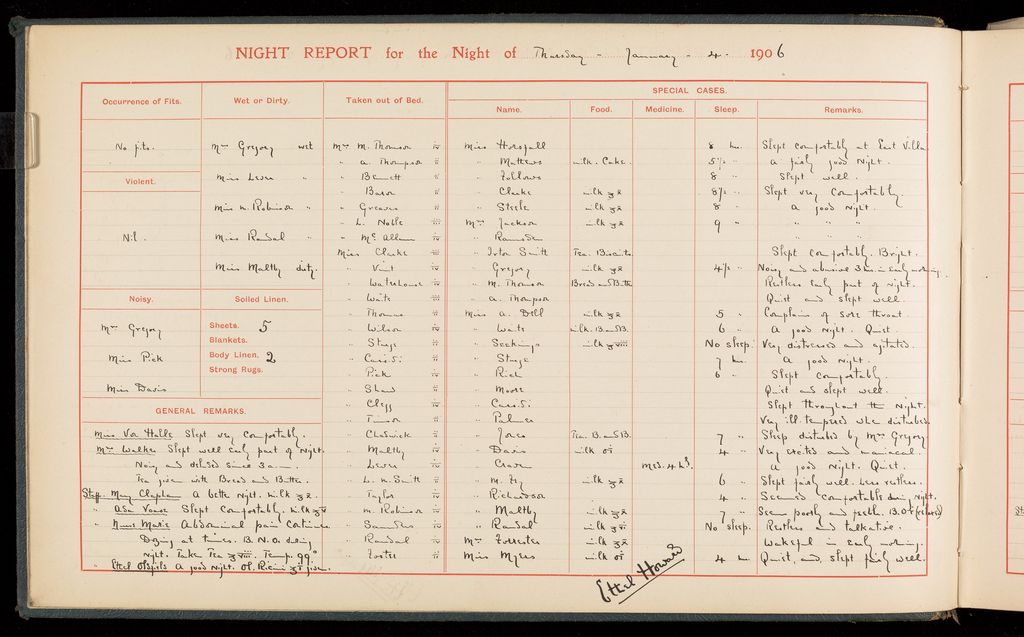 NIGHT REPORT for the Night of Thursday - January - 4 - 1906
Occurrence of Fits.
No fits.
Violent.
Nil.
Noisy.
Mrs Gregory
Miss Pick
Miss Davis
Wet or Dirty.
Mrs Gregory wet
Miss Lever "
Miss N. Robinson "
Miss Randal "
Miss Maltby dirty.
Soiled Linen.
Sheets. 5
Blankets.
Body Linen. 2
Strong Rugs.
GENERAL REMARKS.
Miss Von Halle Slept very comfortably.
Mrs Walker Slept well early part of night.
Noisy and deluded since 3 a.m.
Tea given with Bread and Butter.
Staff. Mary Chaplan A better night. Milk
" Ada Vouse Slept comfortably. Milk
" Nurse Marie Abdominal pain continues
Dozing at times. B.N.O. during
night. Taken Tea Temp. 99°
" Ethel Oldfield A good night. Ol. Ricini given.
Taken out of Bed.
Mrs M. Thomson iv
" A. Thompson ii
" Bennett ii
" Baron
" Greaves
" L. Noble
" McAllum iv
Miss Clarke
" Vint
" Waterhouse
" Waite
" Thomas ii
" Wilson
" Sturge
"
" Pick
" Shaw
" Clegg iv
"
" Chadwick
" Maltby
" Lever
" L. N. Smith
" Taylor
" M. Robinson
" Saunders
" Randal
" Forster
SPECIAL CASES.
Name. Food. Medicine. Sleep. Remarks.
Miss Horsfall 8 hrs. Slept comfortably at East Villa
" Mathews Milk. Cake. 5½ " A fairly good night.
" Follows 8 " Slept well.
" Clarke Milk 8½ " Slept very comfortably.
" Steele Milk 8 " A good night.
Mrs Jackson Milk 9 " " " "
" Ramsden " " "
" Irton Smith Tea. Biscuits. Slept comfortably. Bright.
" Gregory Milk 4½ " Noisy and abusive 3 hrs. in early morning.
" M. Thomson Bread and Butter Restless early part of night.
" A. Thompson Quiet and slept well.
Miss A. Dell Milk 5 " Complains of sore throat.
" Waite Milk. B. and B. 6 " A good night. Quiet.
" Seekings Milk No sleep. Very distressed and agitated.
" Sturge 7 hrs. A good night.
" Rich 6 " Slept comfortably.
" Moore Quiet and slept well.
" Slept throughout the night.
" Palmer Very ill-tempered when disturbed.
" Jones Tea. B. and B. 7 " Sleep disturbed by Mrs Gregory
" Davis Milk 4 " Very excited and maniacal.
" Med. 4 hrs. A good night. Quiet.
" 6 " Slept fairly well. Less restless.
" Richardson 4 " Seemed comfortable during night.
" Maltby Milk 7 " Seems poorly and feeble.
" Randal Milk No sleep. Restless and talkative.
Mrs Forrester Milk Wakeful in early morning.
Miss Myers Milk 4 hrs Quiet, and slept fairly well.
Ethel Howard